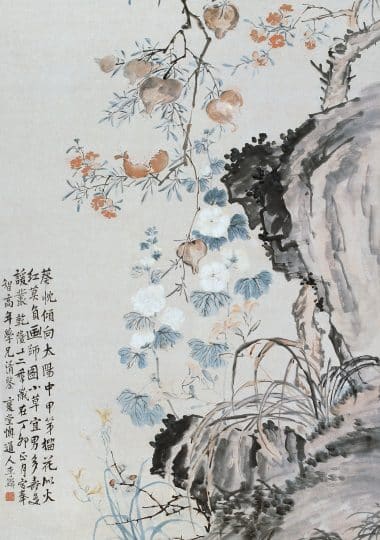 葵忱傾向太陽中甲第榴花似火
紅莫負画師圖小草宜男多壽是
諼叢乾隆十二歲在丁卯正月写奉
智高年學兄清鑒復堂懊道人李鱓